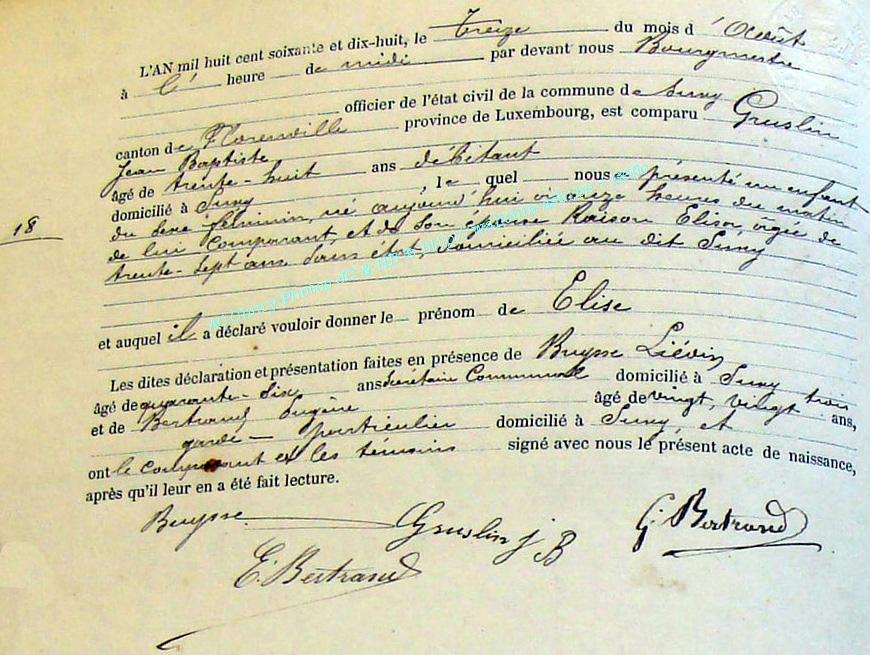 L'AN mil huit cent soixante et dix-huit, le Treize du mois d'Octobre
à l' heure de midi par devant nous Bourgmestre
officier de l'état civil de la commune de Suxy
canton de Florenville province de Luxembourg, est comparu Gruslin
Jean Baptiste
âgé de trente-huit ans débitant
domicilié à Suxy, lequel nous a présenté un enfant
18
du sexe féminin, né aujourd'hui à onze heures du matin
de lui Comparant, et de son épouse Raison Elise, âgée de
trente-sept ans sans état, domiciliée au dit Suxy
et auquel il a déclaré vouloir donner le prénom de Elise
Les dites déclaration et présentation faites en présence de Buysse Liévin
âgé de quarante-six ans Secrétaire Communal domicilié à Suxy
et de Bertrand Eugène âgé de vingt, vingt trois ans,
garde-particulier domicilié à Suxy, et
ont le comparant et les témoins signé avec nous le présent acte de naissance,
après qu'il leur en a été fait lecture.
Buysse Gruslin J B G. Bertrand
E. Bertrand